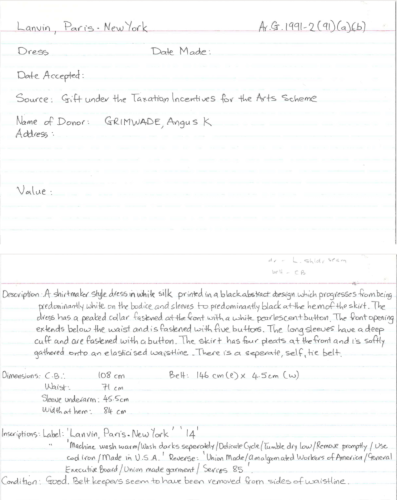 Lanvin, Paris - New York Ar.G. 1991-2 (91)(a)(b)
Dress Date Made:
Date Accepted:
Source: Gift under the Taxation Incentives for the Arts Scheme
Name of Donor: GRIMWADE, Angus K
Address:
Value:
Description: A shirtmaker style dress in white silk printed in a black abstract design which progresses from being
predominantly white on the bodice and sleeves to predominantly black at the hem of the skirt. The
dress has a peaked collar fastened at the front with a white pearlescent button. The front opening
extends below the waist and is fastened with five buttons. The long sleeves have a deep
cuff and are fastened with a button. The skirt has four pleats at the front and is softly
gathered onto an elasticised waistline. There is a seperate, self, tie belt.
Dimensions: C.B.: 108 cm Belt: 146 cm (l) x 4.5 cm (w)
Waist: 71 cm
Sleeve underarm: 45.5cm
Width at hem: 84 cm
Inscriptions: Label: 'Lanvin, Paris - New York' '14'
" 'Machine wash warm/Wash darks seperately/Delicate Cycle/Tumble dry low/Remove promptly / Use
cool iron/Made in U.S.A.' Reverse: 'Union Made/Amalgamated Workers of America/General
Executive Board/Union made garment / Series 85'.
Condition: Good. Belt keepers seem to have been removed from sides of waistline.